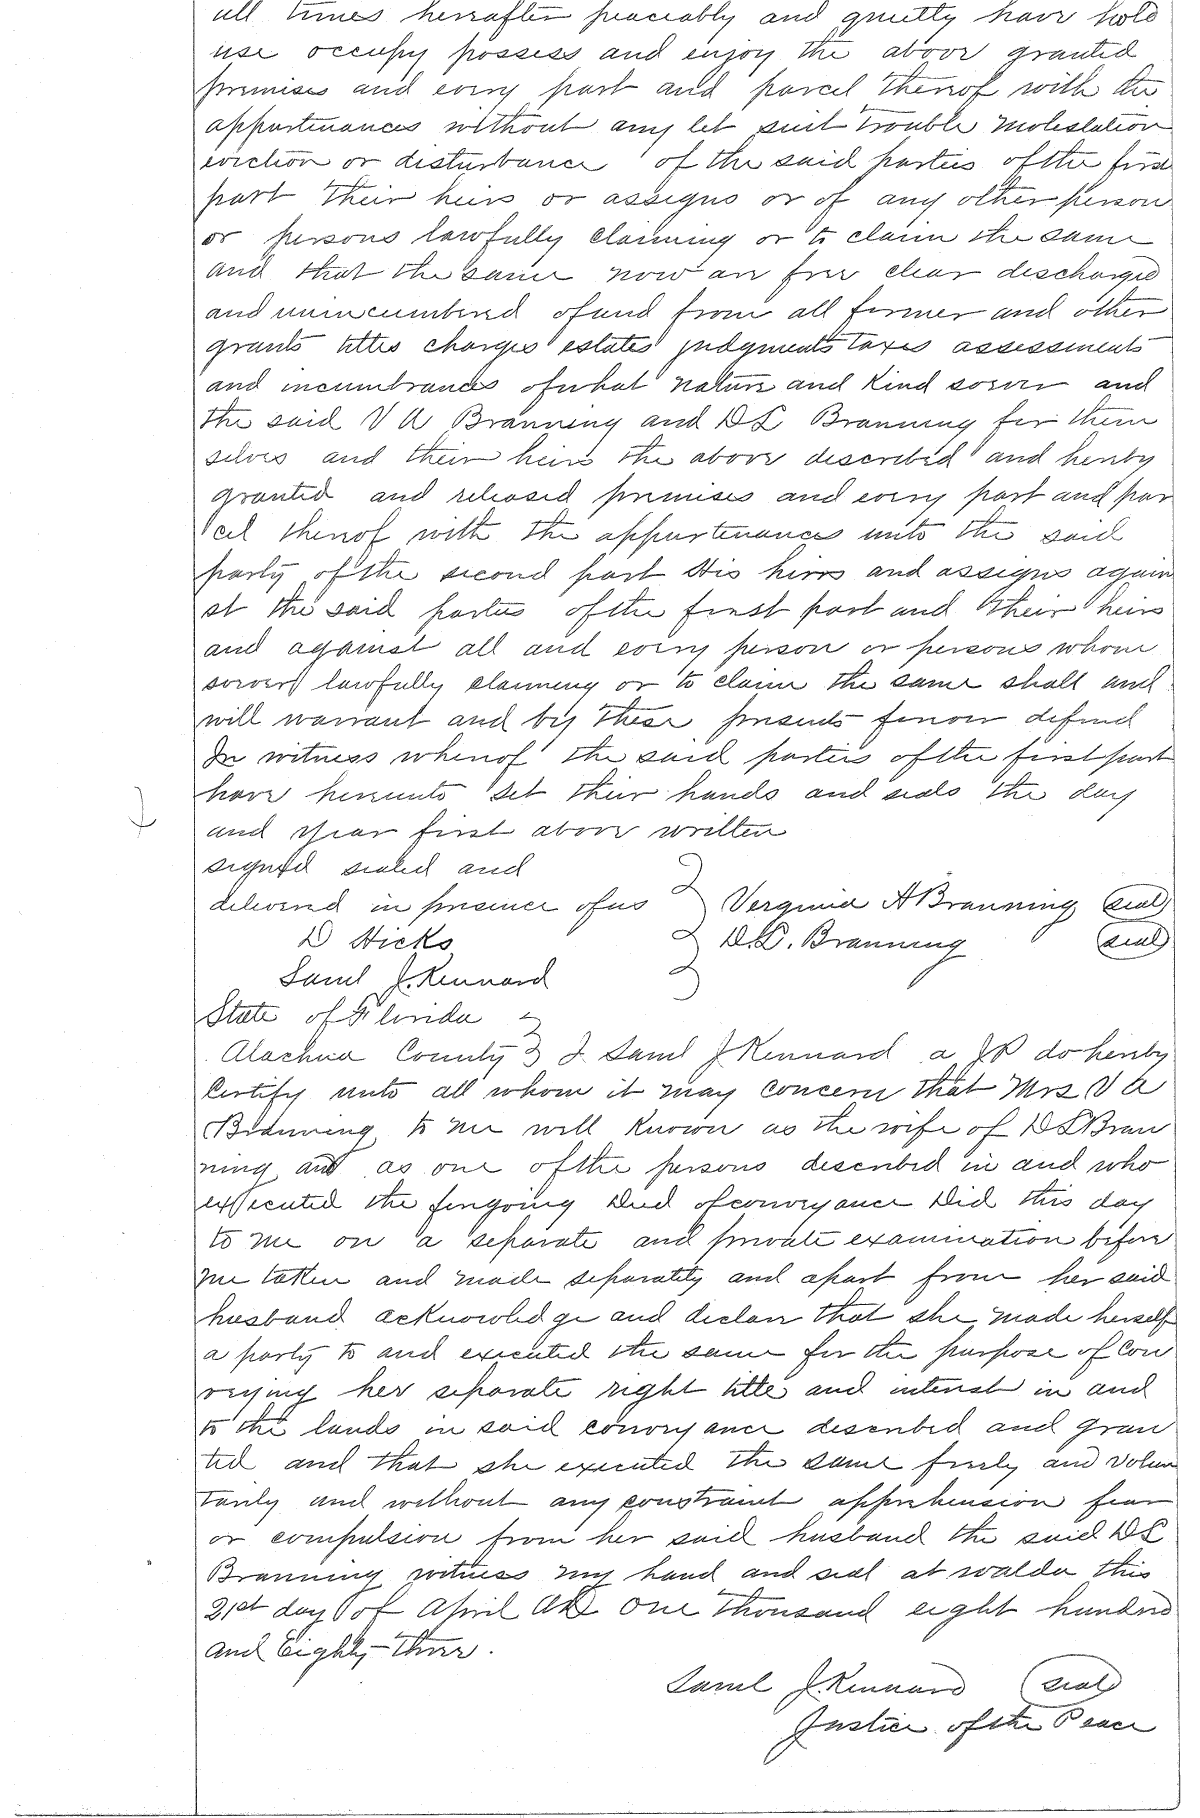 all times hereafter peaceably and quietly have hold
use occupy possess and enjoy the above granted
premises and every part and parcel thereof with the
appurtenances without any let suit trouble molestation
eviction or disturbance of the said parties of the first
part their heirs or assigns or of any other person
or persons lawfully claiming or to claim the same
and that the same now are free clear discharged
and unincumbered of and from all former and other
grants titles charges estates judgments taxes assessments
and incumbrances of what nature and kind soever and
the said V A Branning and D L Branning for them
selves and their heirs the above described and hereby
granted and released premises and every part and par
cel thereof with the appurtenances unto the said
party of the second part His heirs and assigns again
st the said parties of the first part and their heirs
and against all and every person or persons whom
soever lawfully claiming or to claim the same shall and
will warrant and by these presents forever defend
In witness whereof the said parties of the first part
have hereunto set their hands and seals the day
and year first above written
signed sealed and
delivered in presence of us } Verginia A Branning (seal)
D Hicks } D.L. Branning (seal)
Saml J. Kennard }
State of Florida }
Alachua County } I Saml J Kennard a JP do hereby
Certify unto all whom it may concern that Mrs V A
Branning to me well known as the wife of D L Bran
ning and as one of the persons described in and who
executed the foregoing Deed of conveyance Did this day
to me on a separate and private examination before
me taken and made separately and apart from her said
husband acknowledge and declare that she made herself
a party to and executed the same for the purpose of Con
veying her separate right title and interest in and
to the lands in said conveyance described and gran
ted and that she executed the same freely and volun
tarily and without any constraint apprehension fear
or compulsion from her said husband the said D L
Branning witness my hand and seal at waldo this
21st day of April AD One Thousand eight hundred
and Eighty-three.
Saml J. Kennard (seal)
Justice of the Peace